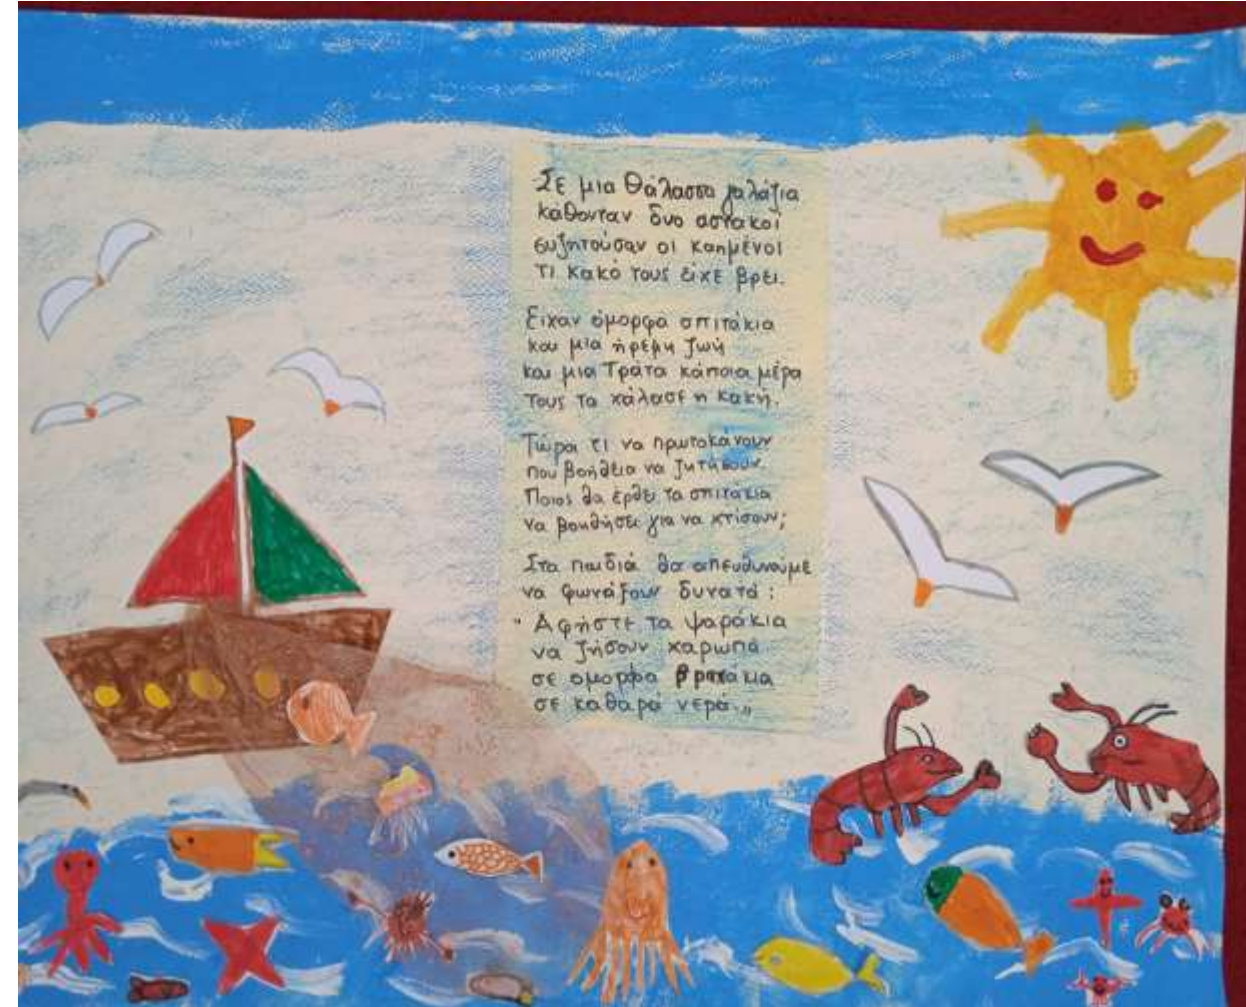 Σε μια θάλασσα γαλάζια
κάθονταν δυο αστακοί
συζητούσαν οι καημένοι
τι κακό τους είχε βρει.
Είχαν όμορφα σπιτάκια
και μια ήρεμη ζωή
και μια Τράτα κάποια μέρα
τους τα χάλασε η κακή.
Τώρα τι να πρωτοκάνουν
που βοήθεια να ζητήσουν.
Ποιος θα έρθει τα σπιτάκια
να βοηθήσει για να χτίσουν;
Στα παιδιά θα απευθυνούμε
να φωνάξουν δυνατά:
"Αφήστε τα ψαράκια
να ζήσουν χαρωπά
σε όμορφα βραχάκια
σε καθαρά νερά."